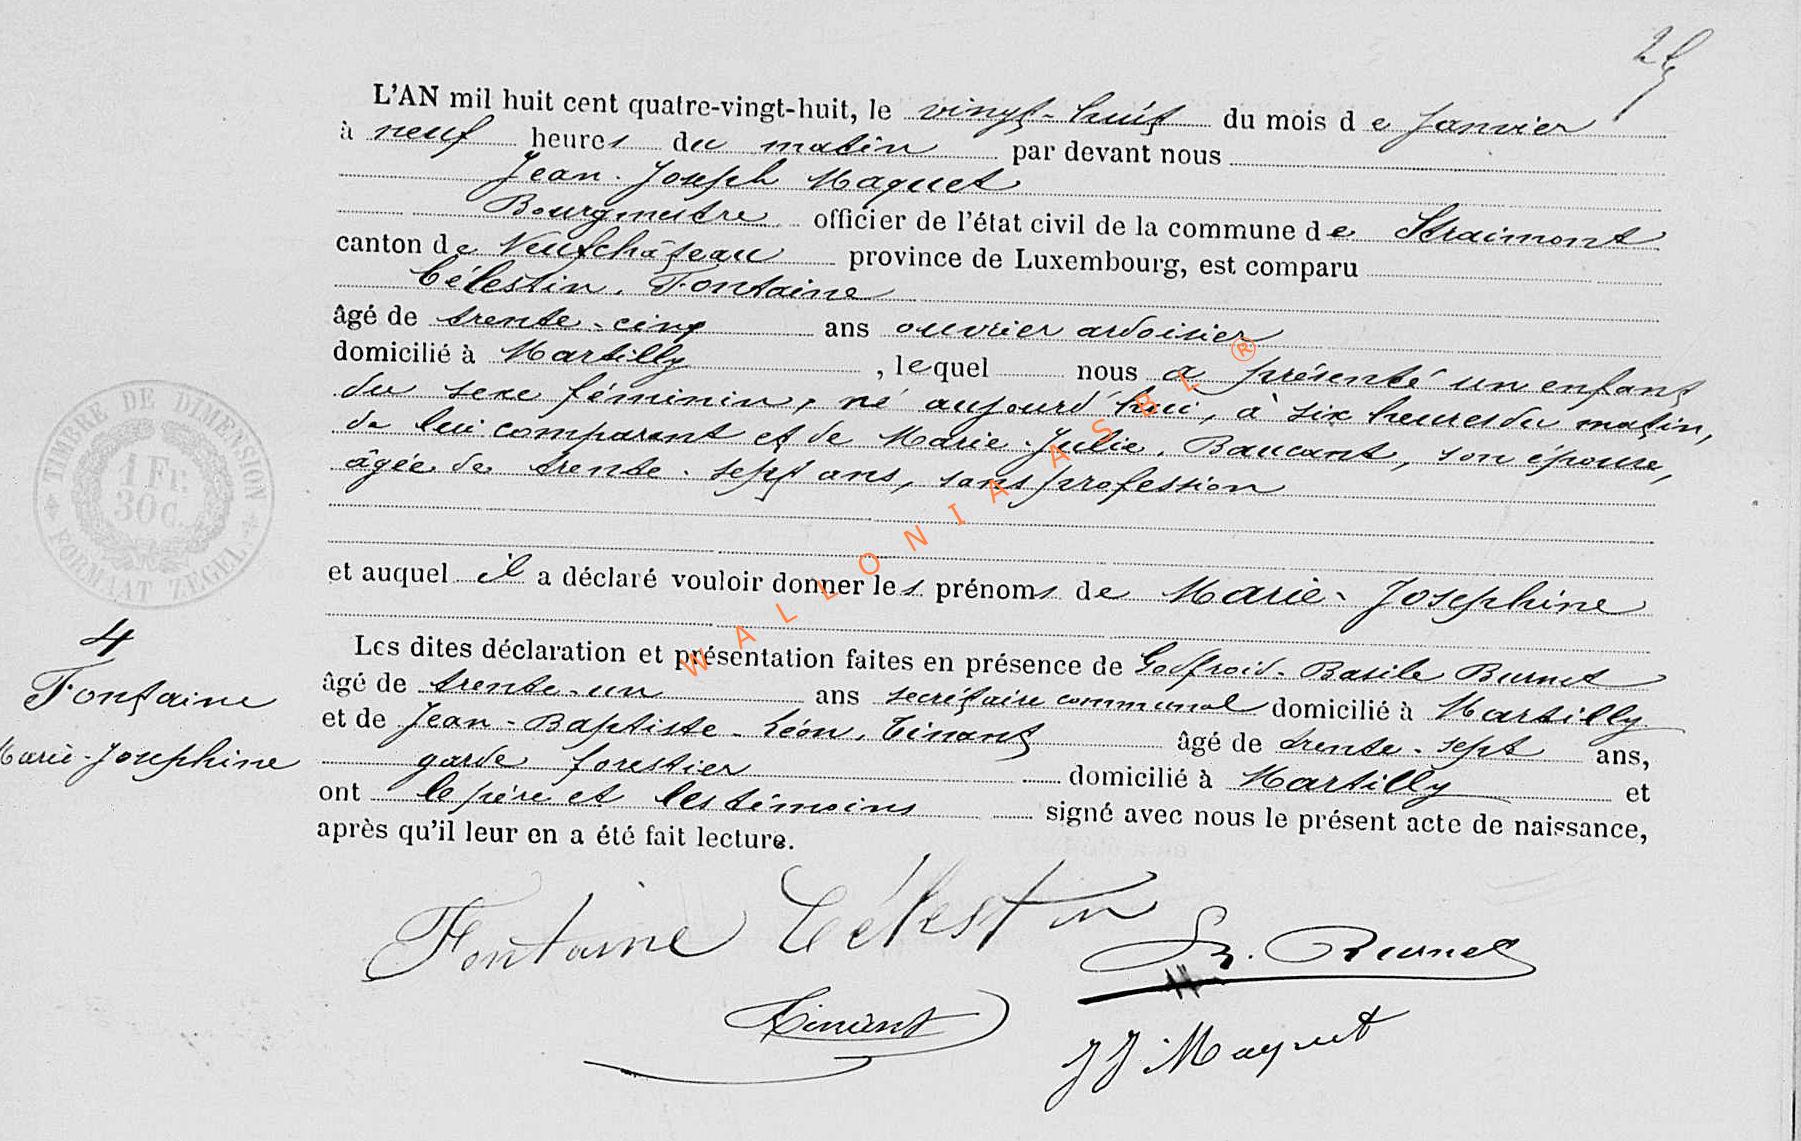 L'AN mil huit cent quatre-vingt-huit, le vingt-huit du mois de Janvier
à neuf heures du matin par devant nous
Jean-Joseph Maquet
Bourgmestre officier de l'état civil de la commune de Straimont
canton de Neufchâteau province de Luxembourg, est comparu
Célestin Fontaine
âgé de trente-cinq ans ouvrier ardoisier
domicilié à Martilly, lequel nous a présenté un enfant
du sexe féminin, né aujourd'hui, à six heures du matin,
de lui comparant et de Marie-Julie Baucant, son épouse,
âgée de trente-sept ans, sans profession
et auquel il a déclaré vouloir donner les prénoms de Marie-Josephine
Les dites déclaration et présentation faites en présence de Godfroid-Basile Burnet
âgé de trente-un ans secrétaire communal domicilié à Martilly
et de Jean-Baptiste-Léon Tinant âgé de trente-sept ans,
garde forestier domicilié à Martilly et
ont le père et les témoins signé avec nous le présent acte de naissance,
après qu'il leur en a été fait lecture.
4
Fontaine
Marie-Josephine
Fontaine Célestin
Burnet
Tinant
JJ Maquet
TIMBRE DE DIMENSION
1 Fr.
30 C.
FORMAAT ZEGEL
WALLONIA ASBL ®